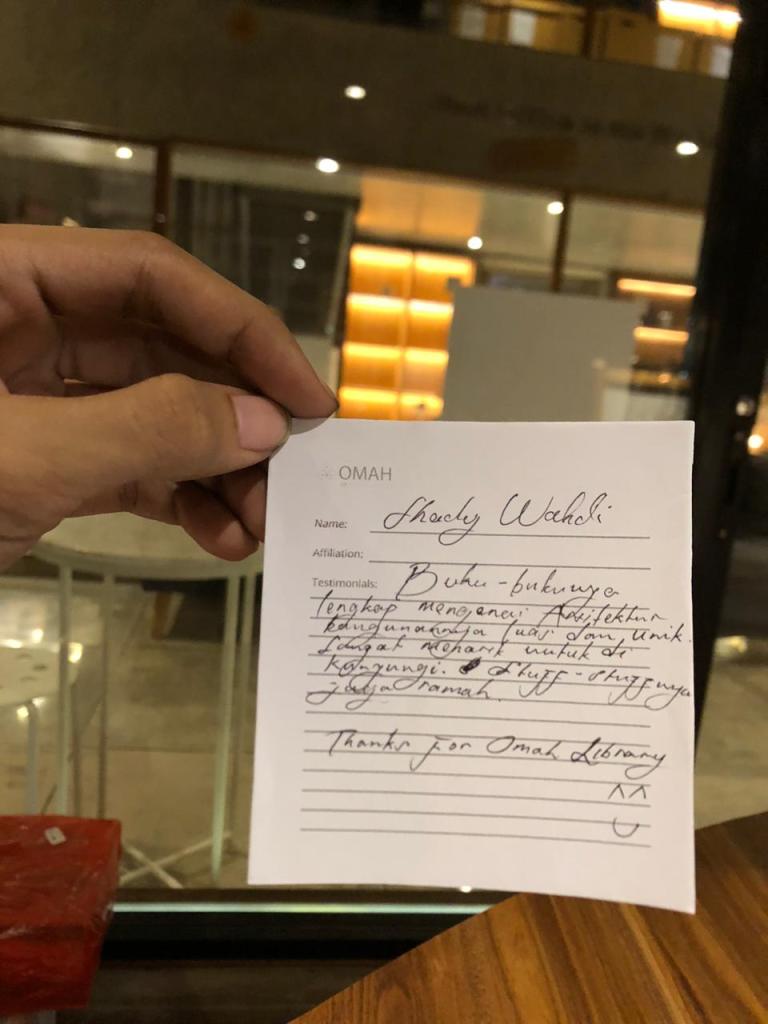 OMAH
Name: Shady Wahdi
Affiliation:
Testimonials: Buku-bukunya
lengkap mengenai Arsitektur.
bangunannya luas dan unik.
Sangat menarik untuk di
kunjungi. Stuff-stuffnya
juga ramah.
Thanks for Omah Library
^^